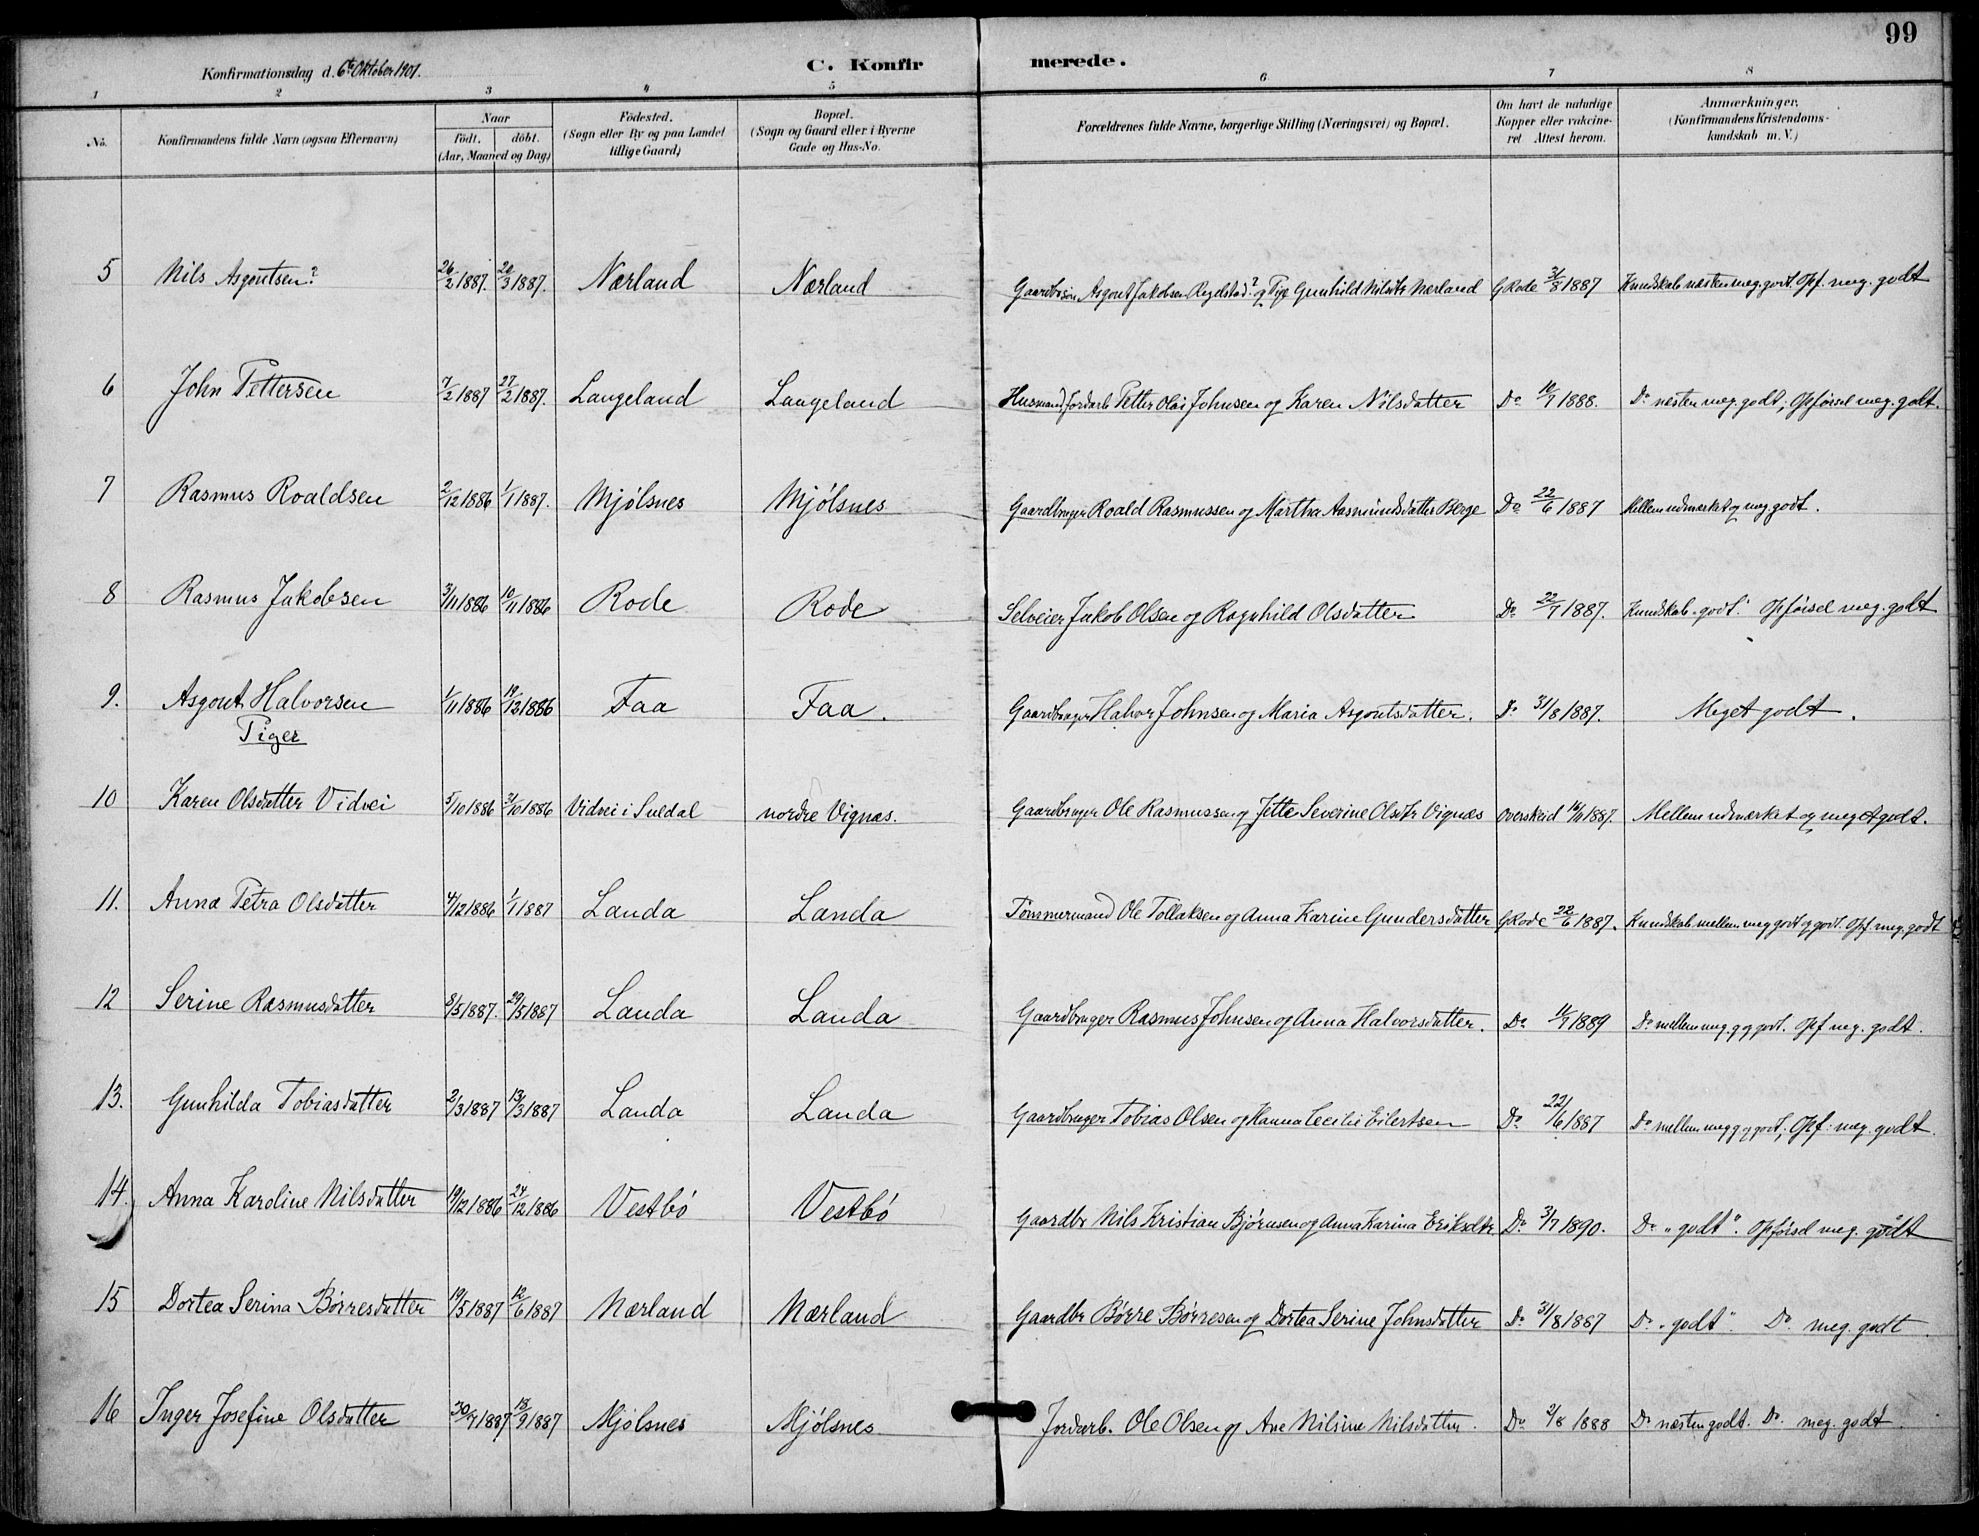 99
Konfirmationsdag d. 6te Oktober 1901. C. Konfirmerede.
1 2 3 4 5 6 7 8
No. Konfirmandens fulde Navn (ogsaa Efternavn) Naar født. døbt. (Aar, Maaned og Dag) Födested. (Sogn eller By og paa Landet tillige Gaard) Bopæl. (Sogn og Gaard eller i Byerne Gade og Hus-No. Forældrenes fulde Navne, borgerlige Stilling (Næringsvei) og Bopæl. Om havt de naturlige Kopper eller vakcineret Attest herom. Anmærkninger, (Konfirmandens Kristendomskundskab m. V.)
5 Nils Asgoutsen? 26/2 1887. 20/3 1887. Nærland Nærland Asgout Jakobsen ? og Pige Gunhild Nilsdtr Nærland GRode 31/8 1887 Kundskab næsten meg. godt. Opf. meg. godt
6 John Pettersen 7/2 1887 27/2 1887. Langeland Langeland Husmand, Jordarb Petter Olai Johnsen og Karen Nilsdatter Do 10/7 1888. Do næsten meg. godt; Opførsel meg. godt.
7 Rasmus Roaldsen 2/12 1886 1/1 1887. Mjølsnes Mjølsnes Gaardbruger Roald Rasmussen og Martha Aasmundsdatter Berge Do 22/6 1887 Mellem udmærket og meg godt.
8 Rasmus Jakobsen 3/11 1886 10/11 1886 Rode Rode Selveier Jakob Olsen og Ragnhild Olsdatter Do 22/7 1887. Kundskab "godt." Opførsel meg. godt
9. Asgout Halvorsen 1/11 1886 19/12 1886 Faa Faa. Gaardbruger Halvor Johnsen og Maria Asgoutsdatter. Do 31/8 1887. Meget godt.
Piger
10 Karen Olsdatter Vidvei 5/10 1886 31/10 1886 Vidvei i Suldal nordre Vignæs. Gaardbruger Ole Rasmussen og Jette Severine Olsdtr Vignæs Overskeid 16/11 1887. Mellem udmærket og meget godt.
11. Anna Petra Olsdatter 4/12 1886 1/1 1887 Landa Landa Tømmermand Ole Tollaksen og Anna Karine Gundersdatter GRode 22/6 1887. Kundskab mellem meg godt og godt. Opf. meg. godt
12 Serine Rasmusdatter 8/5 1887. 29/5 1887 Landa Landa Gaardbruger Rasmus Johnsen og Anna Halvorsdatter. Do 11/7 1889 Do mellem meg. g og godt. Opf meg. godt.
13. Gunhilda Tobiasdatter 2/3 1887 13/3 1887 Landa Landa Gaardbruger Tobias Olsen og Hanna Cecilie Eilertsen Do 22/6 1887 Do mellem meg g og godt; Opf. meg. godt.
14. Anna Karoline Nilsdatter 19/12 1886 24/12 1886 Vestbø Vestbø Gaardbr Nils Kristian Bjørnsen og Anna Karina Eriksdtr Do 3/7 1890. Do "godt". Opførsel meg. godt
15 Dortea Serina Børresdatter 19/5 1887 12/6 1887 Nærland Nærland Gaardbr Børre Børresen og Dortea Serine Johnsdatter Do 31/8 1887 Do "godt". Do. meg. godt.
16 Inger Josefine Olsdatter 1887 18/9 1887 Mjølsnes Mjølsnes Jordarb. Ole Olsen og Ane Nilsine Nilsdatter. Do 2/8 1888 Do næsten godt. Do. meg. godt.